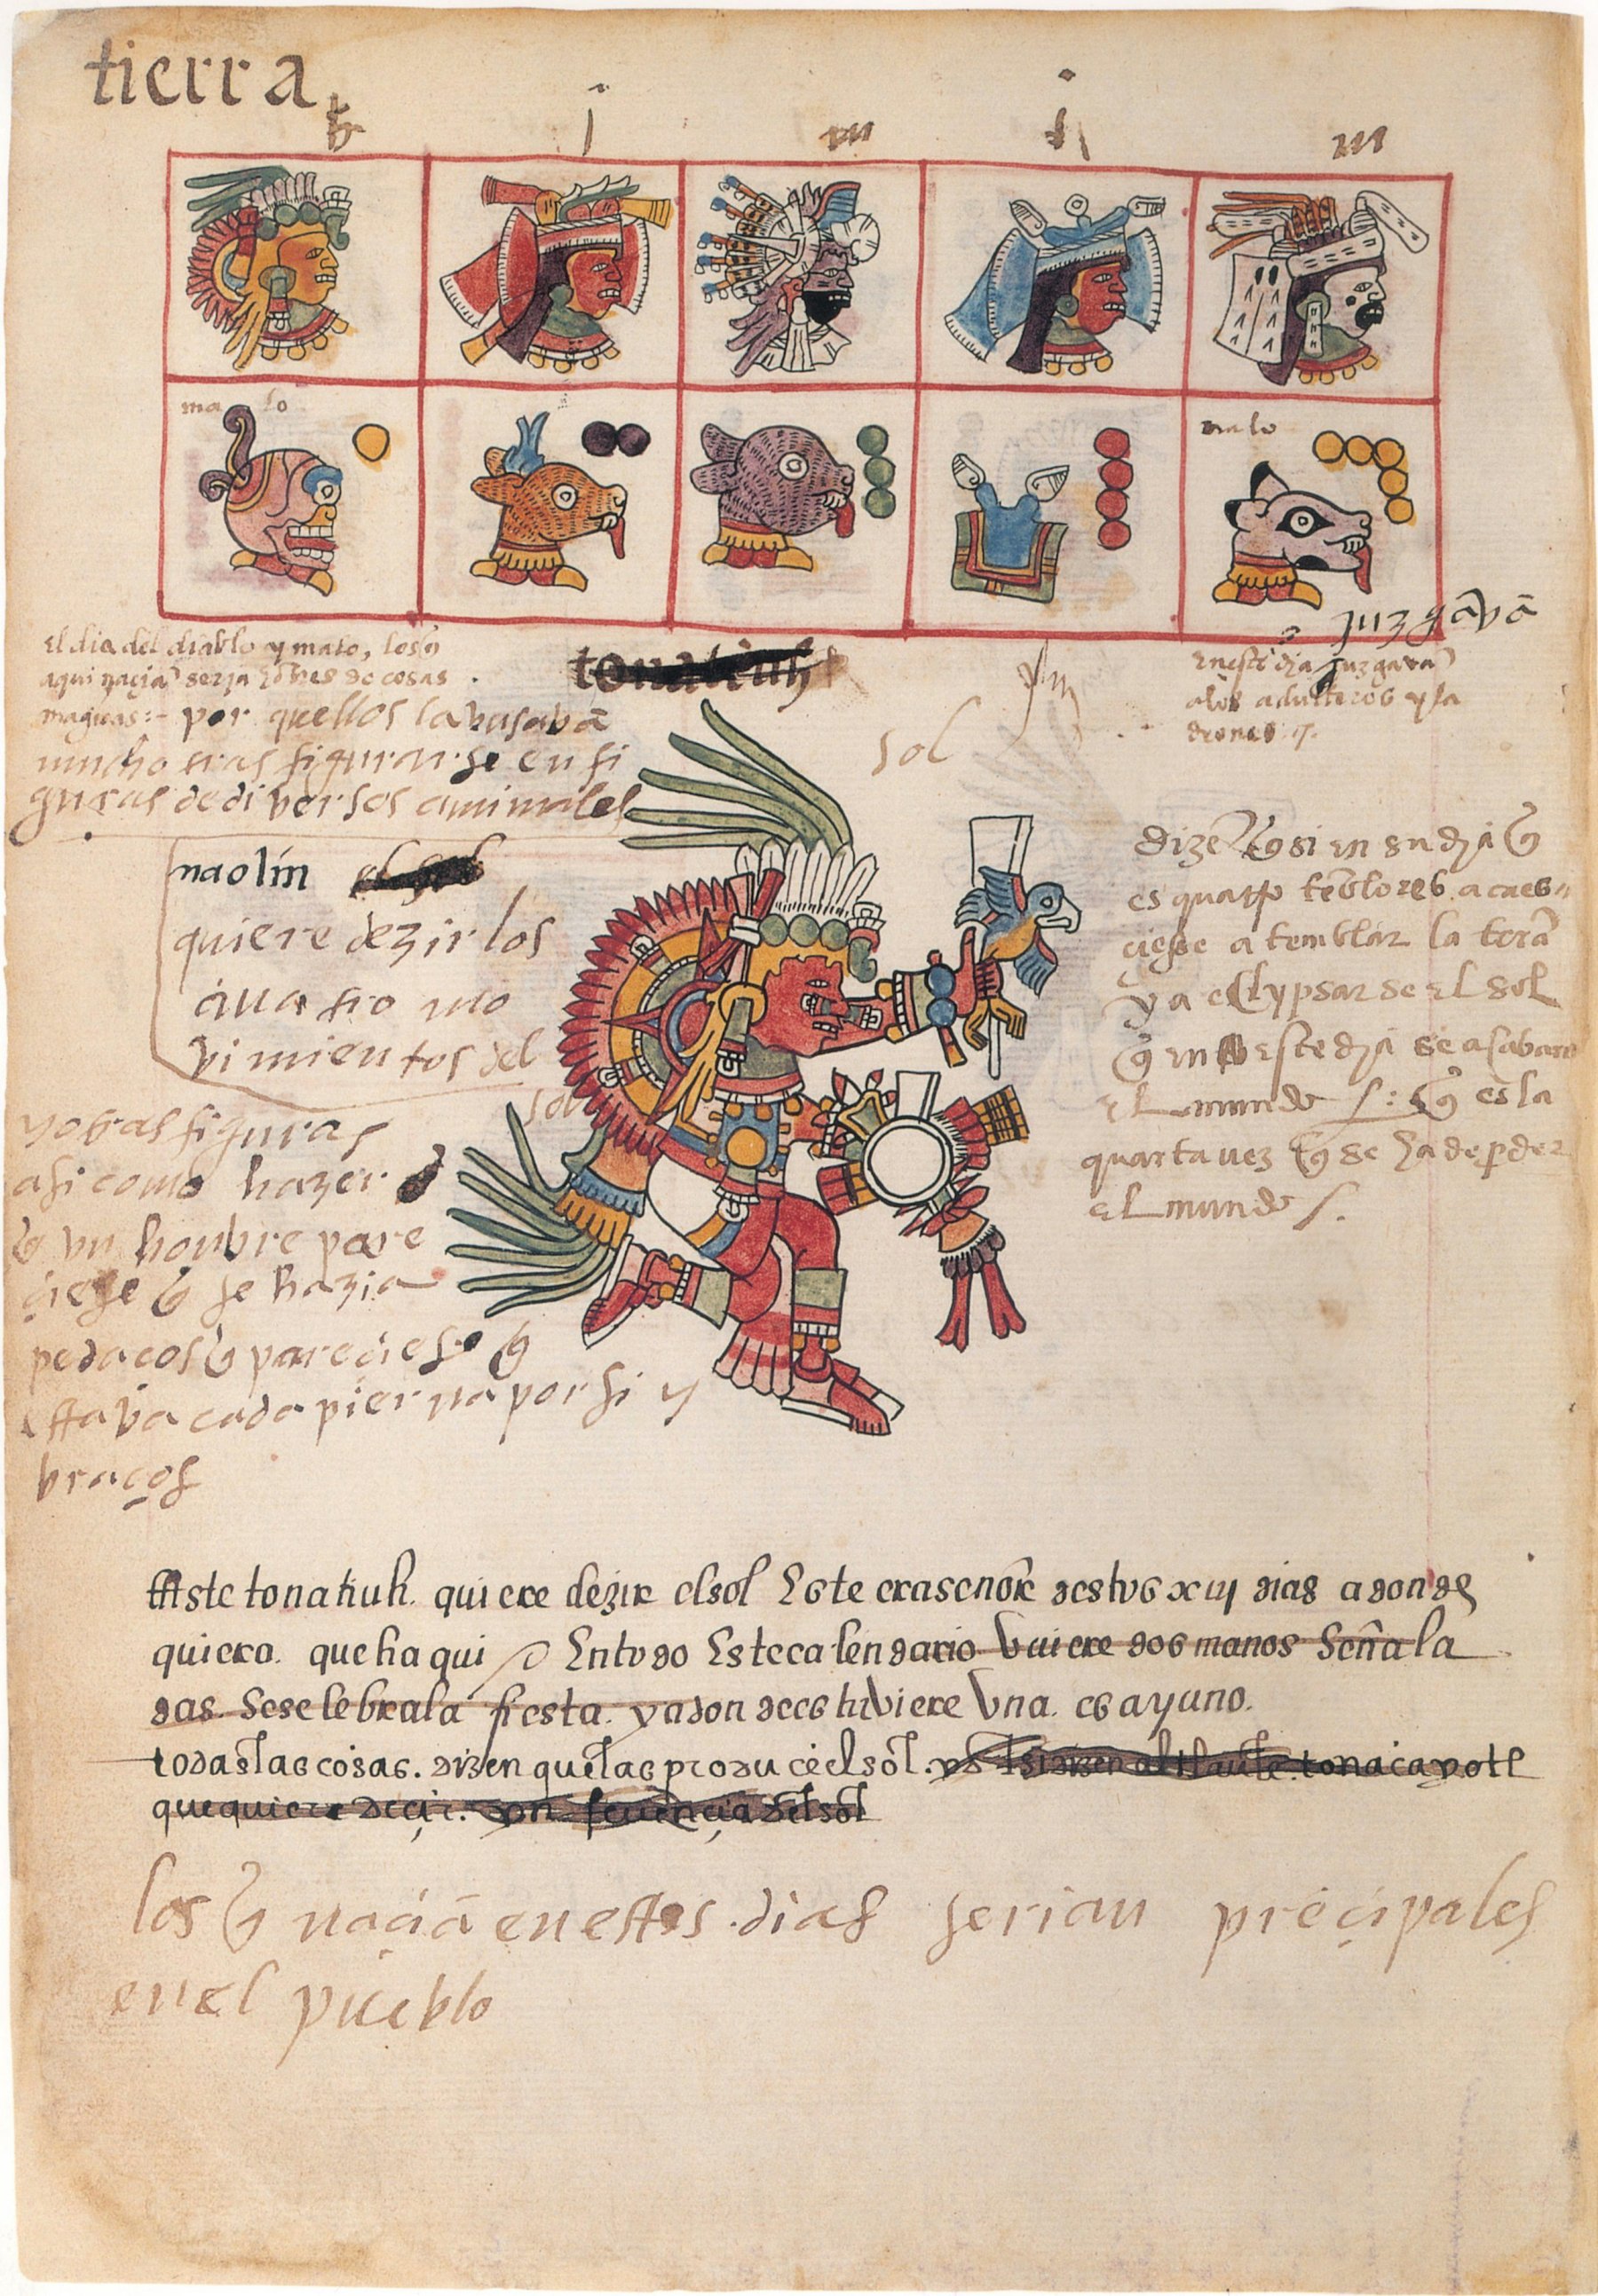 tierra
b j m j m
ma lo
malo
juzgavā
El dia del diablo y malo, los q̄
aqui naçiā serīa hōbres de cosas
magicas:- por quellos la vusabā
mucho tras figurarse en fi
guras de diversos animales
tonatiuh
sol
eneste dia juzgavā
a los adulteros y la
drones
naolin el sol
quiere dezir los
quatro mo
vimientos del
sol
y otras figuras
asi como hazer
q̄ un honbre pare
çiese q̄ se hazia
pedaços q̄ pareçiese q̄
estava cada pierna por si y
braços
dizē q̄ si en su dia q̄
es quatro tēblores acaes
ciesse a temblar la terā
y a eclypsarse el sol
q̄ en este dia se acabara
el mundo q̄ es la
quarta vez q̄ se ha de perder
el mundo
Este tonatiuh. quiere dezir el sol Este era señor destos xiij dias adonde
quiera. que ha qui Entodo Este calendario Vuiere dos manos Señala
das. Se selebrala fiesta. y adonde estuviere Una. es ayuno.
todas las cosas. dizen que las produce el sol. tonacayotl
que quiere decir. del sol
los q̄ naciā en estos dias serian preçipales
en el pueblo